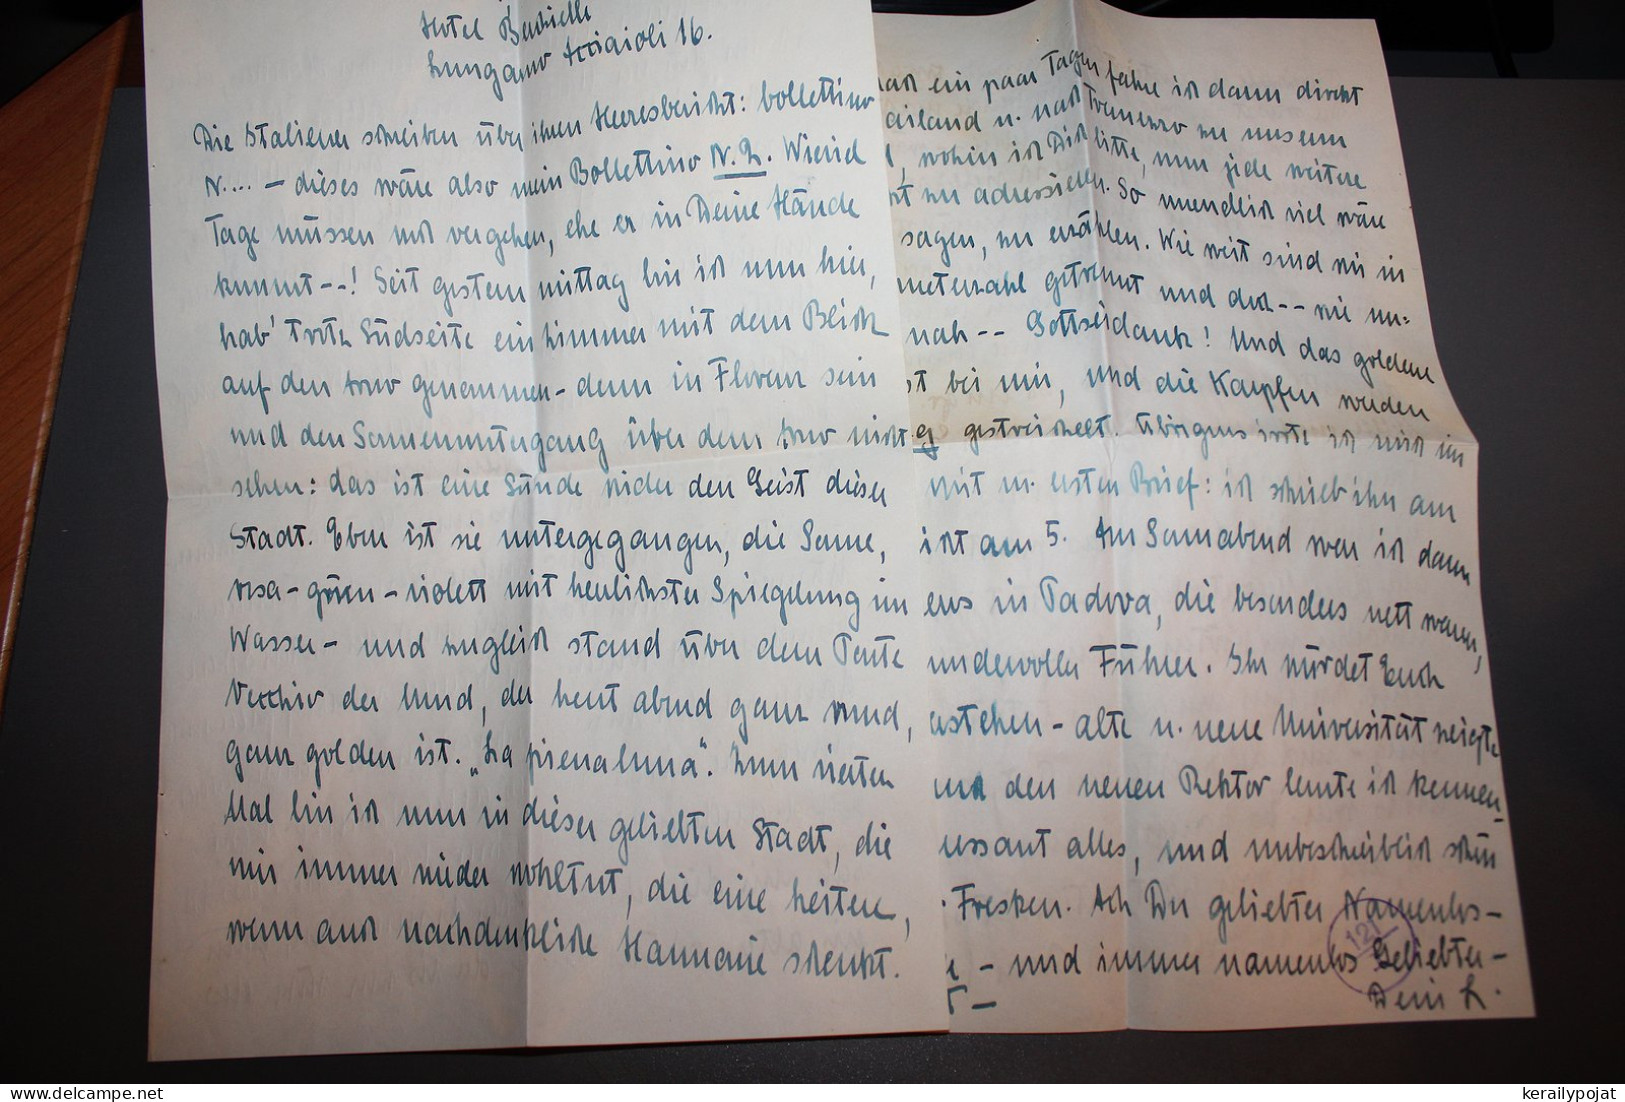 Hotel
Lungarno Acciaioli 16.
Die Italiener schreiben über ihren Heeresbericht: bollettino
N.... – dieses wäre also mein Bollettino N. 2. Wieviel
Tage müssen noch vergehen, ehe er in Deine Hände
kommt --! Seit gestern mittag bin ich nun hier,
hab' trotz Südseite ein Zimmer mit dem Blick
auf den Arno genommen – denn in Florenz sein
und den Sonnenuntergang über dem Arno nicht
sehen: das ist eine Sünde wider den Geist dieser
Stadt. Eben ist sie untergegangen, die Sonne,
rosa-grün-violett mit herrlichster Spiegelung im
Wasser – und zugleich stand über dem Ponte
Vecchio der Mond, der heut abend ganz rund,
ganz golden ist. „La piena luna". Zum vierten
Mal bin ich nun in dieser geliebten Stadt, die
mir immer wieder wohltut, die eine heitere,
wenn auch nachdenkliche Harmonie schenkt.
ein paar Tagen fahre ich dann direkt
ailand u. nach Tremezzo zu unserm
, wohin ich Dich bitte, nun jede weitere
zu adressieren. So unendlich viel wäre
sagen, zu erzählen. Wie weit sind wir in
meterzahl getrennt und doch -- wie un=
nah -- Gottseidank! Und das goldene
st bei mir, und die Karpfen werden
g gestreichelt. Übrigens irrte ich mich im
mit m. ersten Brief: ich schrieb ihn am
icht am 5. Am Sonnabend war ich dann
ens in Padova, die besonders nett waren,
undervoller Führer. Ihr würdet Euch
erstehen – alte u. neue Universität zeigte
und den neuen Rektor lernte ich kennen,
essant alles, und unbeschreiblich schön
Fresken. Ach Du geliebter Namenlos-
– und immer namenlos Geliebter –
Dein L.
121
kerailypojat © www.delcampe.net
kerailypojat